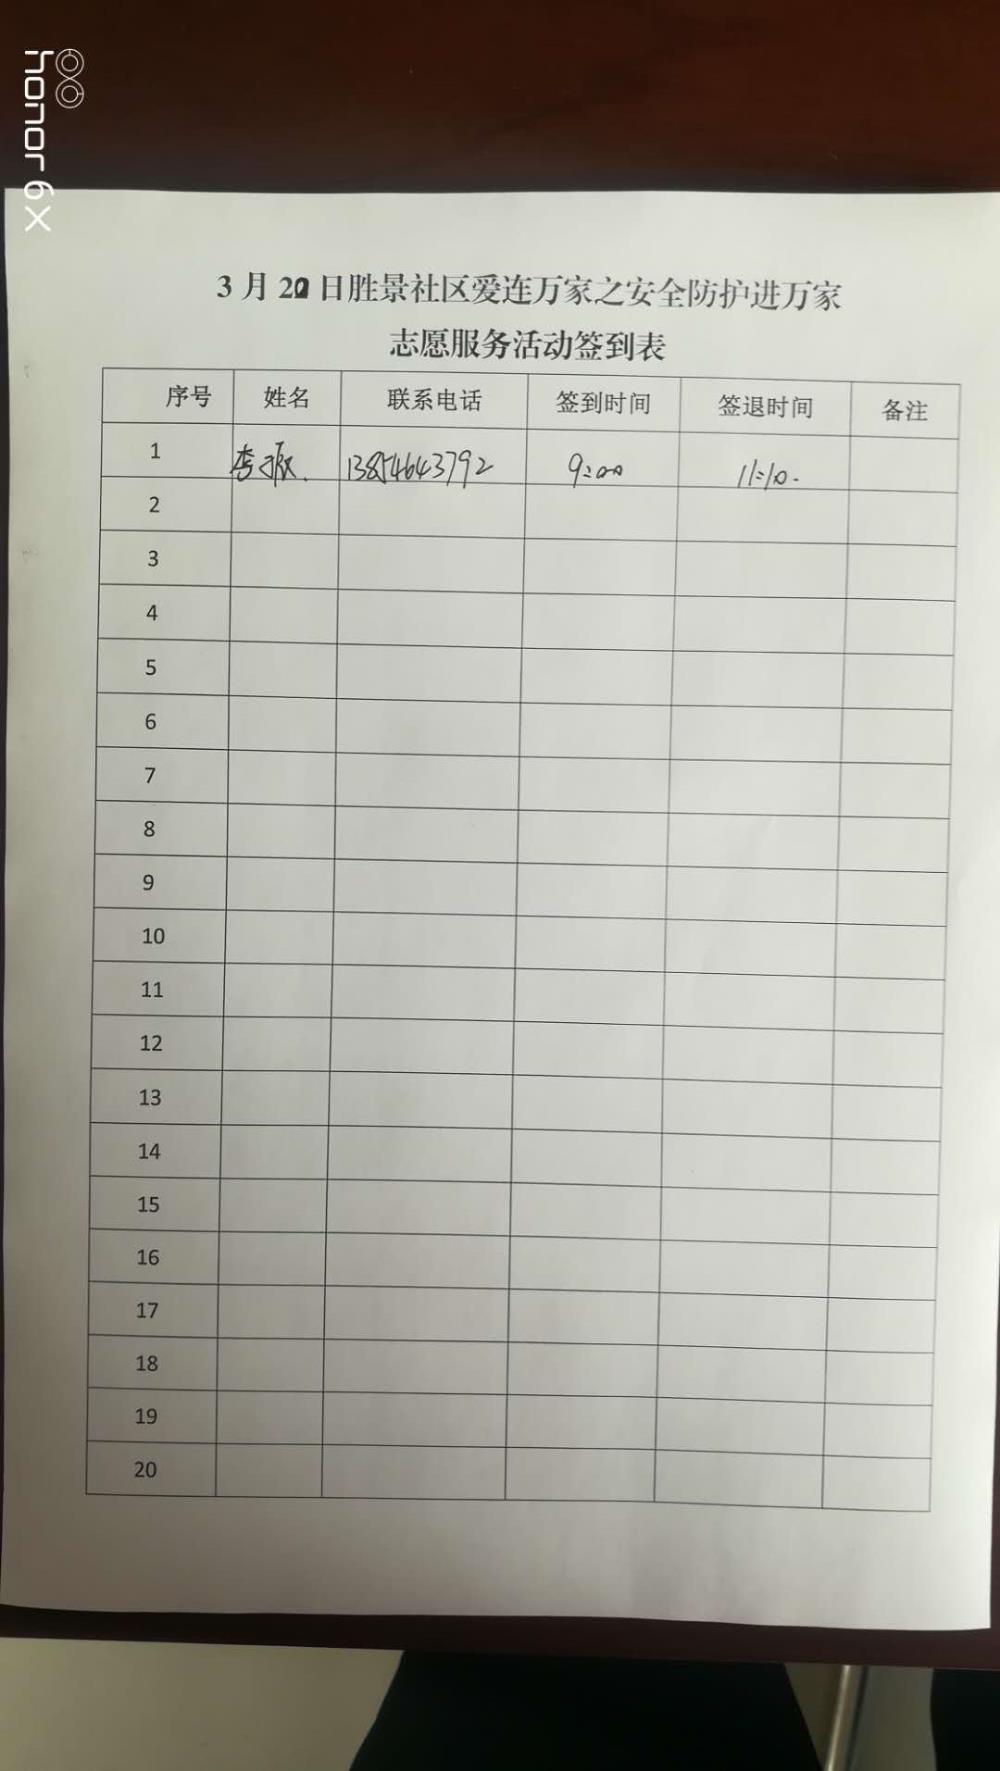 honor 6X
3月20日胜景社区爱连万家之安全防护进万家
志愿服务活动签到表
序号 姓名 联系电话 签到时间 签退时间 备注
1 李 13854643792 9:00 11:10.
2
3
4
5
6
7
8
9
10
11
12
13
14
15
16
17
18
19
20